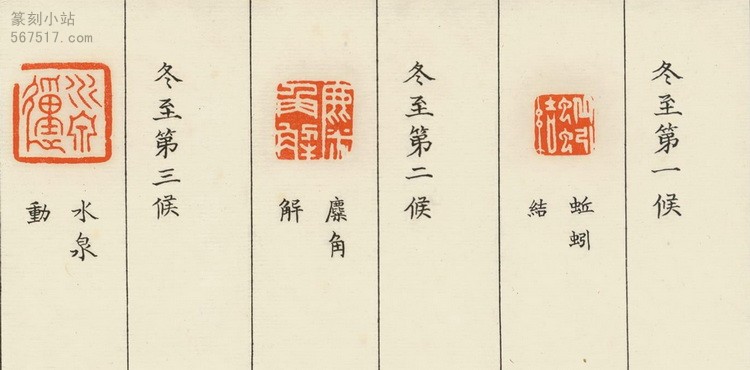 篆刻小站
567517.com
冬至第一候
蚯蚓
結
冬至第二候
麋角
解
冬至第三候
水泉
動